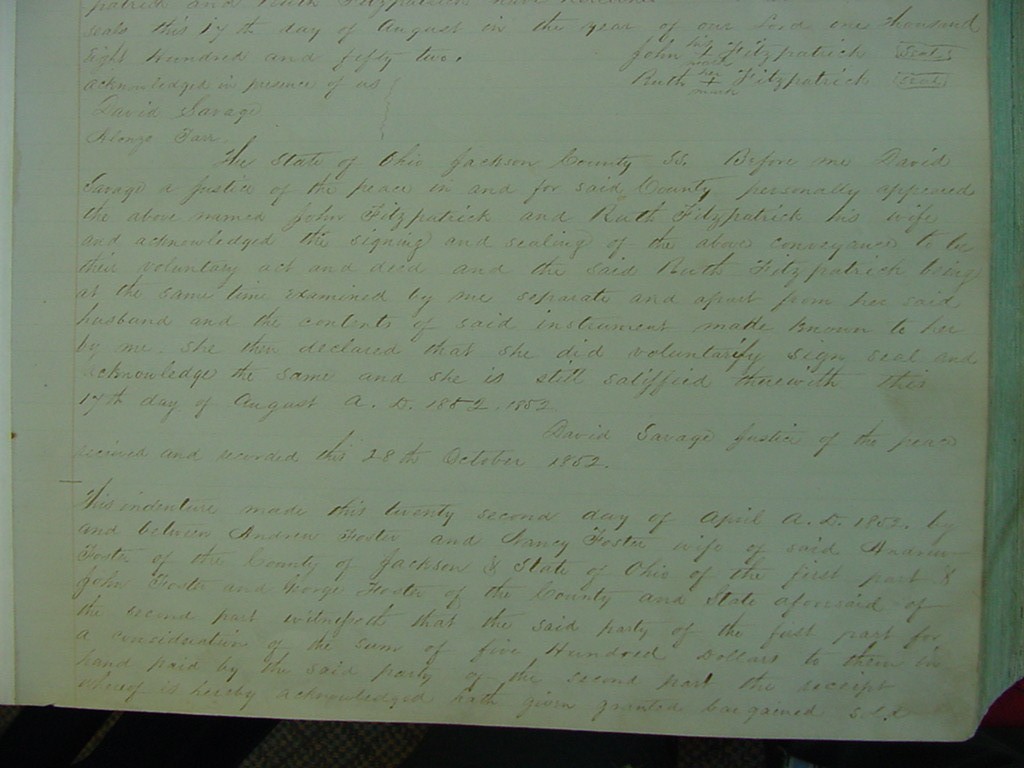 patrick and Ruth Fitzpatrick have hereunto
seals this 17th day of August in the year of our Lord one thousand
Eight Hundred and fifty two.
John his + mark Fitzpatrick Seal
Ruth her + mark Fitzpatrick Seal
acknowledged in presence of us
David Savage
Alonzo Farr
The State of Ohio Jackson County SS. Before me David
Savage a Justice of the peace in and for said County personally appeared
the above named John Fitzpatrick and Ruth Fitzpatrick his wife
and acknowledged the signing and sealing of the above conveyance to be
their voluntary act and deed and the said Ruth Fitzpatrick being
at the same time examined by me separate and apart from her said
husband and the contents of said instrument made known to her
by me. She then declared that she did voluntarily sign seal and
acknowledge the same and she is still satisfied therewith this
17th day of August A. D. 1852. 1852
David Savage Justice of the peace
received and recorded this 28th October 1852.
This indenture made this twenty second day of April A. D. 1852. by
and between Andrew Foster and Nancy Foster wife of said Andrew
Foster of the County of Jackson & State of Ohio of the first part &
John Foster and George Foster of the County and State aforesaid of
the second part witnesseth that the said party of the first part for
a consideration of the sum of five Hundred Dollars to them in
hand paid by the said party of the second part the receipt
whereof is hereby acknowledged hath given granted bargained sold